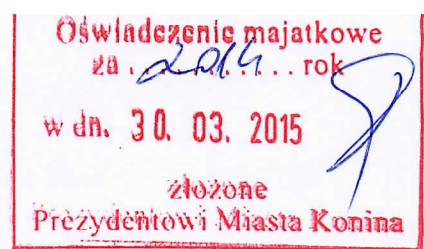 Oświadczenie majatkowe
za . 2014 . . . rok
w dn. 30. 03. 2015
złożone
Prezydentowi Miasta Konina